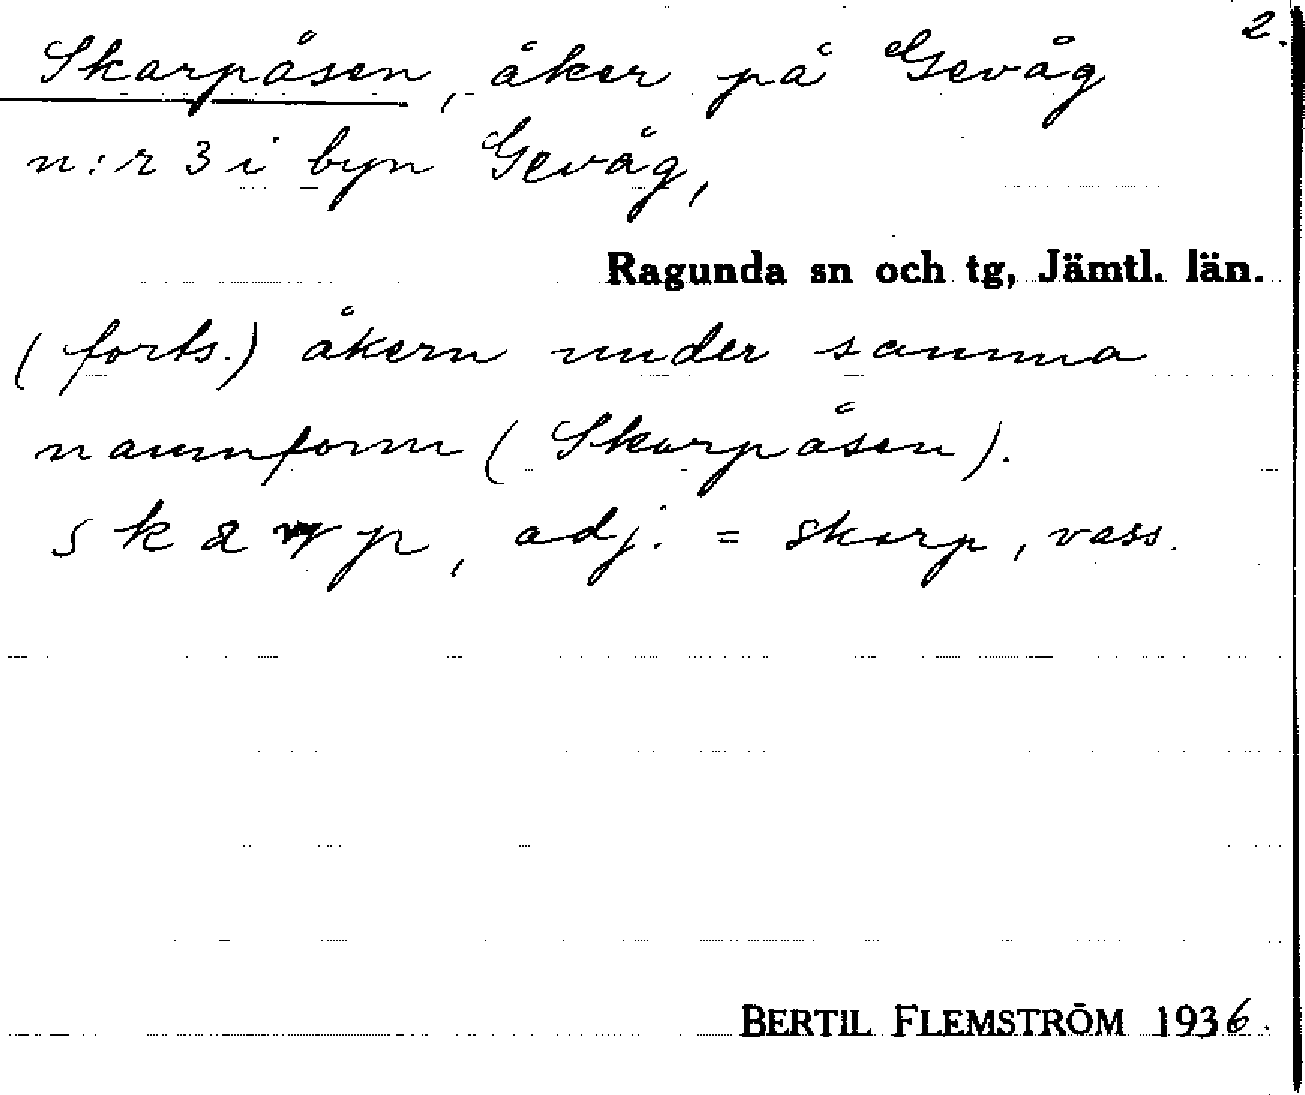 2.
Skarpåsen, åker på Gevåg
n:r 3 i byn Gevåg,
Ragunda sn och tg, Jämtl. län.
(forts.) åkern under samma
namnform (Skarpåsen).
skarp, adj. = skarp, vass.
BERTIL FLEMSTRÖM 1936.